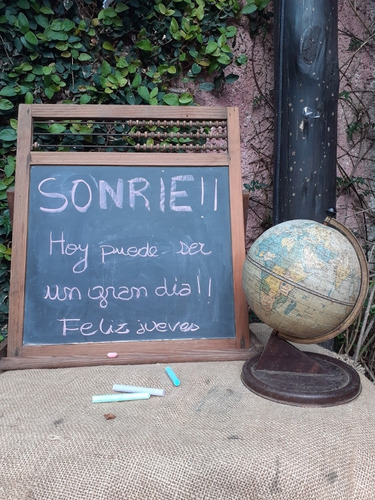 SONRIE!!
Hoy puede ser
un gran dia!!
Feliz jueves